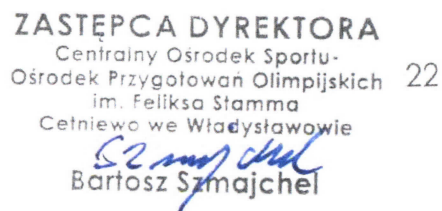 ZASTĘPCA DYREKTORA
Centralny Ośrodek Sportu-
Ośrodek Przygotowań Olimpijskich 22
im. Feliksa Stamma
Cetniewo we Władysławowie
Szmajchel
Bartosz Szmajchel